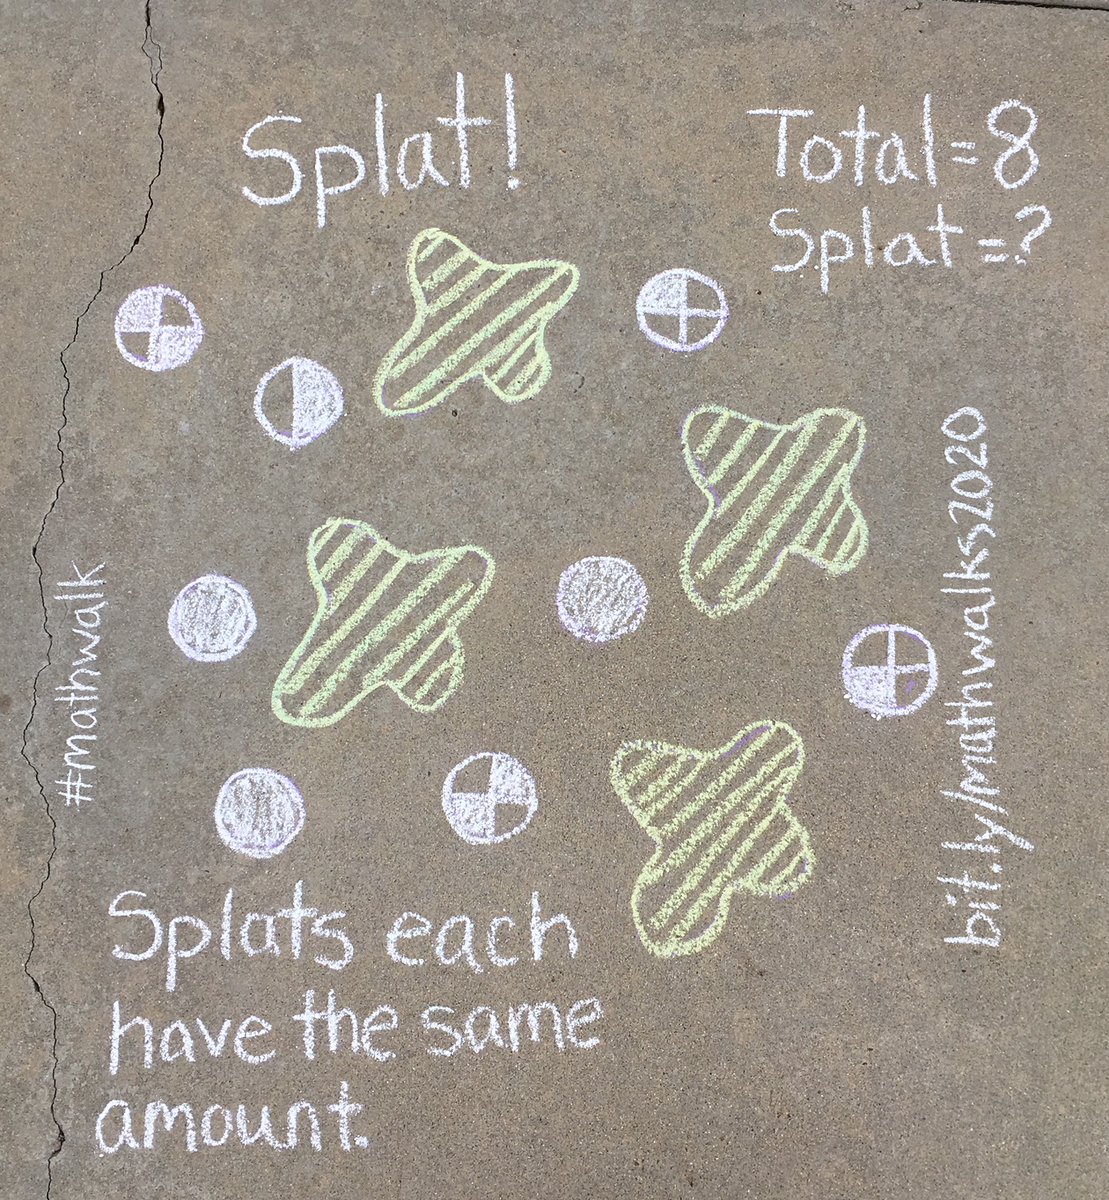 Splat!
Total=8
Splat=?
#mathwalk
bit.ly/mathwalks2020
Splats each
have the same
amount.